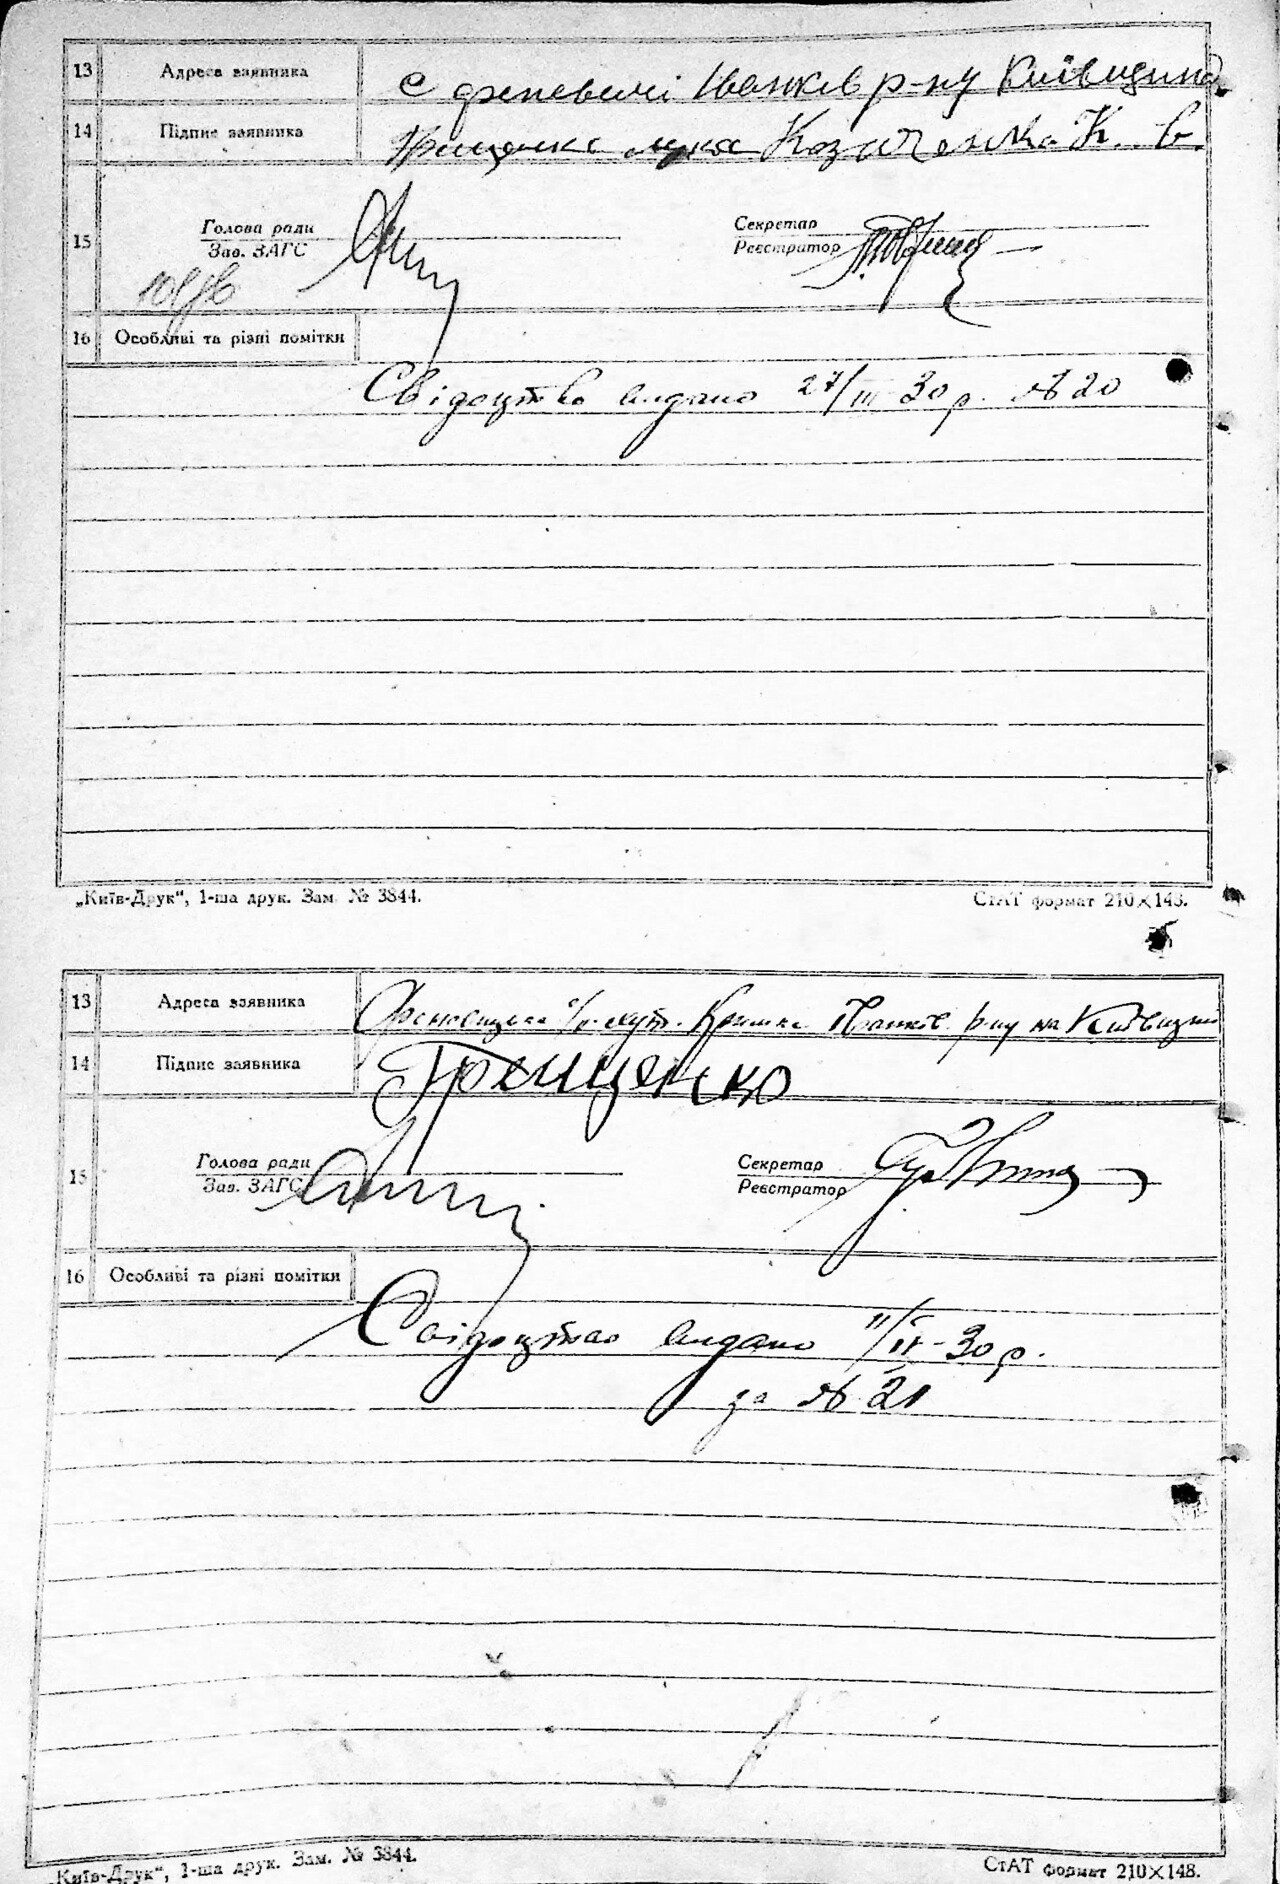 13 Адреса заявника с фепевичі Іванків р-ну Київщина
14 Підпис заявника Грищенко лука Козаченка К. в.
Голова ради Секретар
15
Зав. ЗАГС Реєстратор
16 Особливі та різні помітки
Свідоцтво видано 27/III-30 р. № 20
„Київ-Друк“, 1-ша друк. Зам. № 3844. СтАТ формат 210×148.
13 Адреса заявника с/р хут. Кришка Іванків. р-ну на Київщині
14 Підпис заявника Грищенко
Голова ради Секретар
15
Зав. ЗАГС Реєстратор
16 Особливі та різні помітки
Свідоцтво видано 11/IV-30 р.
за № 21
„Київ-Друк“, 1-ша друк. Зам. № 3844. СтАТ формат 210×148.